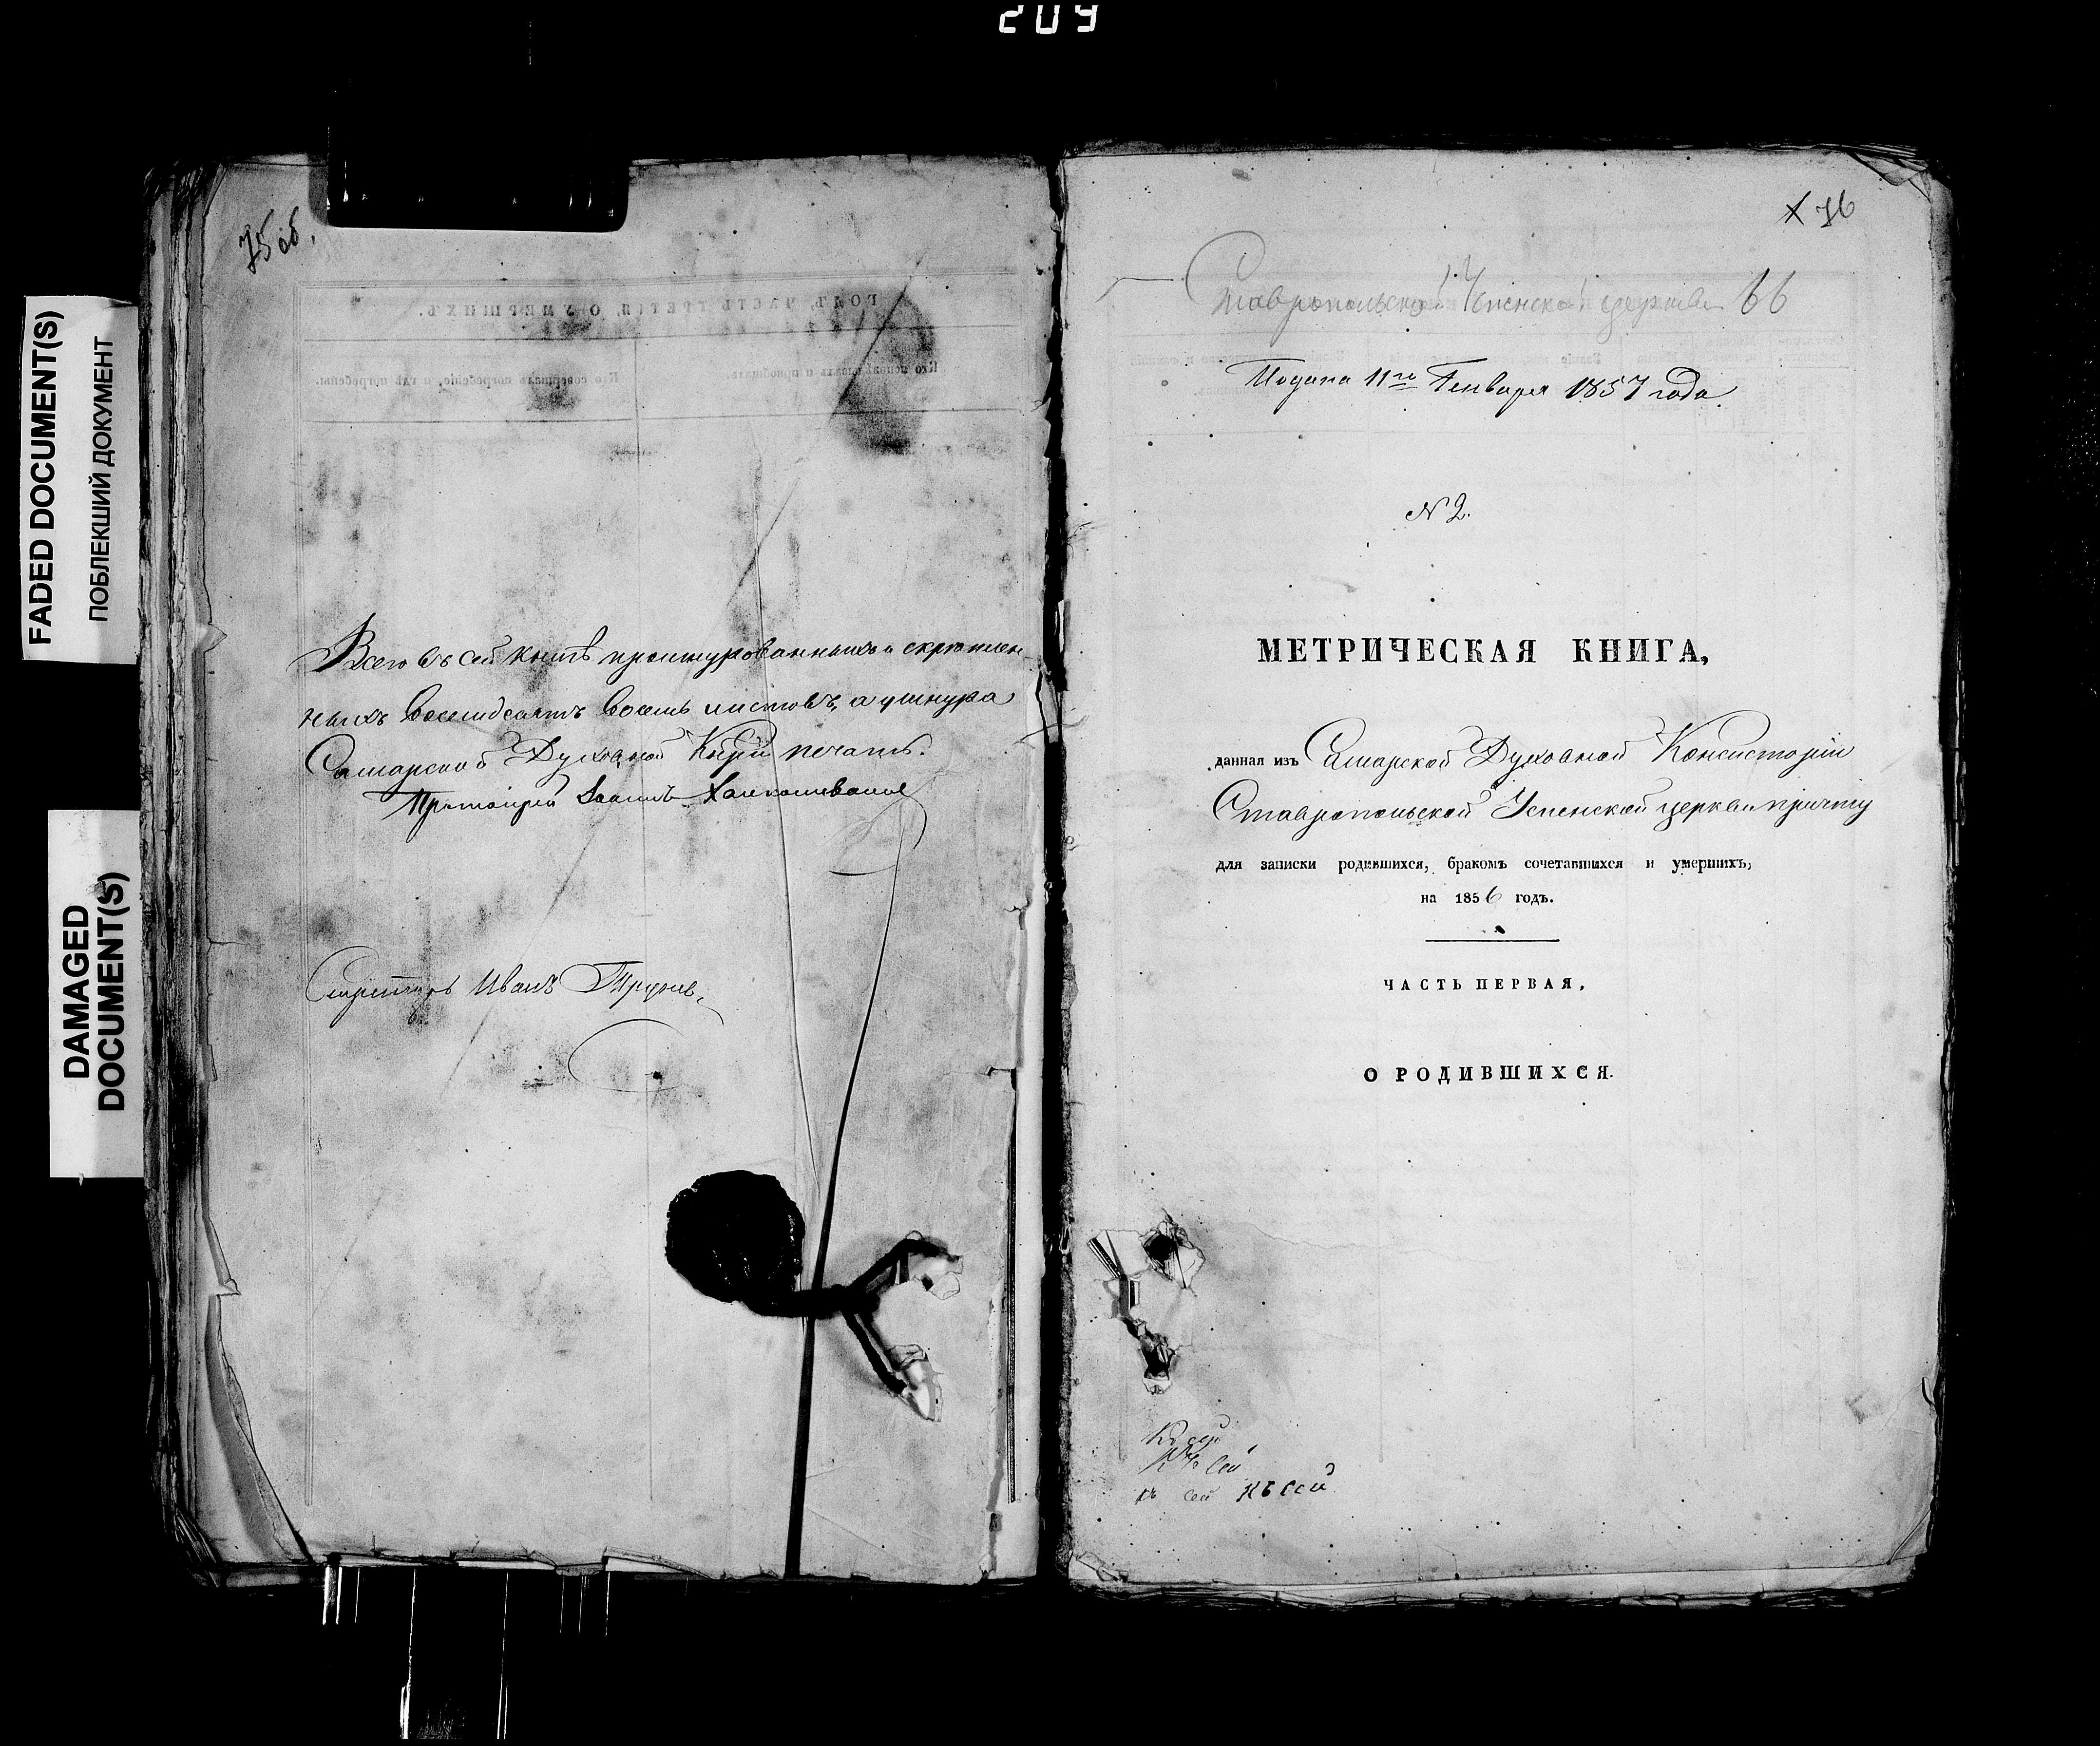 209
FADED DOCUMENT(S)
ПОБЛЕКШИЙ ДОКУМЕНТ
DAMAGED
DOCUMENT(S)
75 об.
ГОДЪ, ЧАСТЬ ТРЕТІЯ, О УМЕРШИХЪ.
Кто исповѣдывалъ и пріобщалъ.
Кто совершалъ погребеніе, и гдѣ погребены.
Всего въ сей книгѣ прошнурованныхъ и скрѣплен
ныхъ восемдесятъ восемь листовъ, а у шнура
Самарской Духовной печать.
Протоіерей Іоаннъ
Секретарь Иванъ
76
Ставропольской Успенской церкви 66
Подана 11го Генваря 1857 года
№ 2.
МЕТРИЧЕСКАЯ КНИГА,
данная изъ Самарской Духовной Консисторіи
Ставропольской Успенской церкви причту
для записки родившихся, бракомъ сочетавшихся и умершихъ,
на 1856 годъ.
ЧАСТЬ ПЕРВАЯ,
О РОДИВШИХСЯ.
Къ сей
Къ сей
къ сей Къ сей